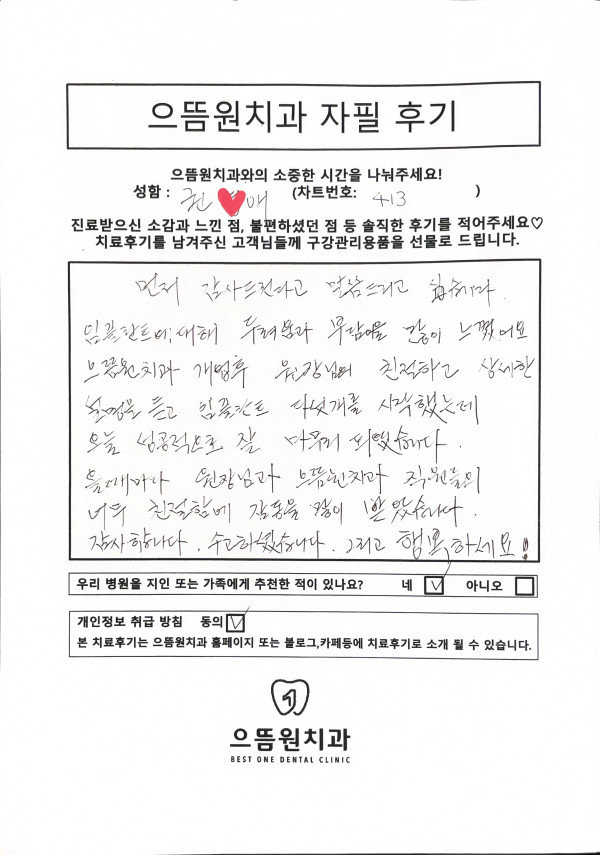 으뜸원치과 자필 후기
으뜸원치과와의 소중한 시간을 나눠주세요!
성함 : 권 애 (차트번호: 413 )
진료받으신 소감과 느낀 점, 불편하셨던 점 등 솔직한 후기를 적어주세요♡
치료후기를 남겨주신 고객님들께 구강관리용품을 선물로 드립니다.
먼저 감사드린다고 말씀드리고 싶습니다.
임플란트에 대해 두려움과 부담을 많이 느꼈어요
으뜸원치과 개업후 원장님의 친절하고 상세한
설명을 듣고 임플란트 다섯개를 시작했는데
오늘 성공적으로 잘 마무리 되었습니다.
올때마다 원장님과 으뜸원치과 직원들의
너무 친절함에 감동을 많이 받았습니다.
감사합니다. 수고하셨습니다. 그리고 행복하세요!
우리 병원을 지인 또는 가족에게 추천한 적이 있나요? 네 ☑ 아니오 □
개인정보 취급 방침 동의 ☑
본 치료후기는 으뜸원치과 홈페이지 또는 블로그,카페등에 치료후기로 소개 될 수 있습니다.
으뜸원치과
BEST ONE DENTAL CLINIC